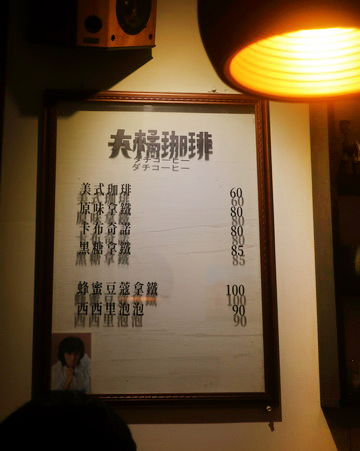 大橘珈琲
ダチコーヒー
美式珈琲 60
原味拿鐵 80
卡布奇諾 80
黑糖拿鐵 85
蜂蜜豆蔻拿鐵 100
西西里泡泡 90